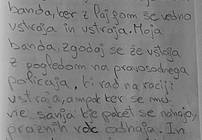 banda, ker z lajfom se vedno
vstraja in vstraja. Moja
banda, zgodaj se že vstaja
z pogledom na pravosodnega
policaja, ki rad na raciji
vstraja, ampak ker se mu
ne sanja kje pacel se nahaja,
praznih rok odhaja. In